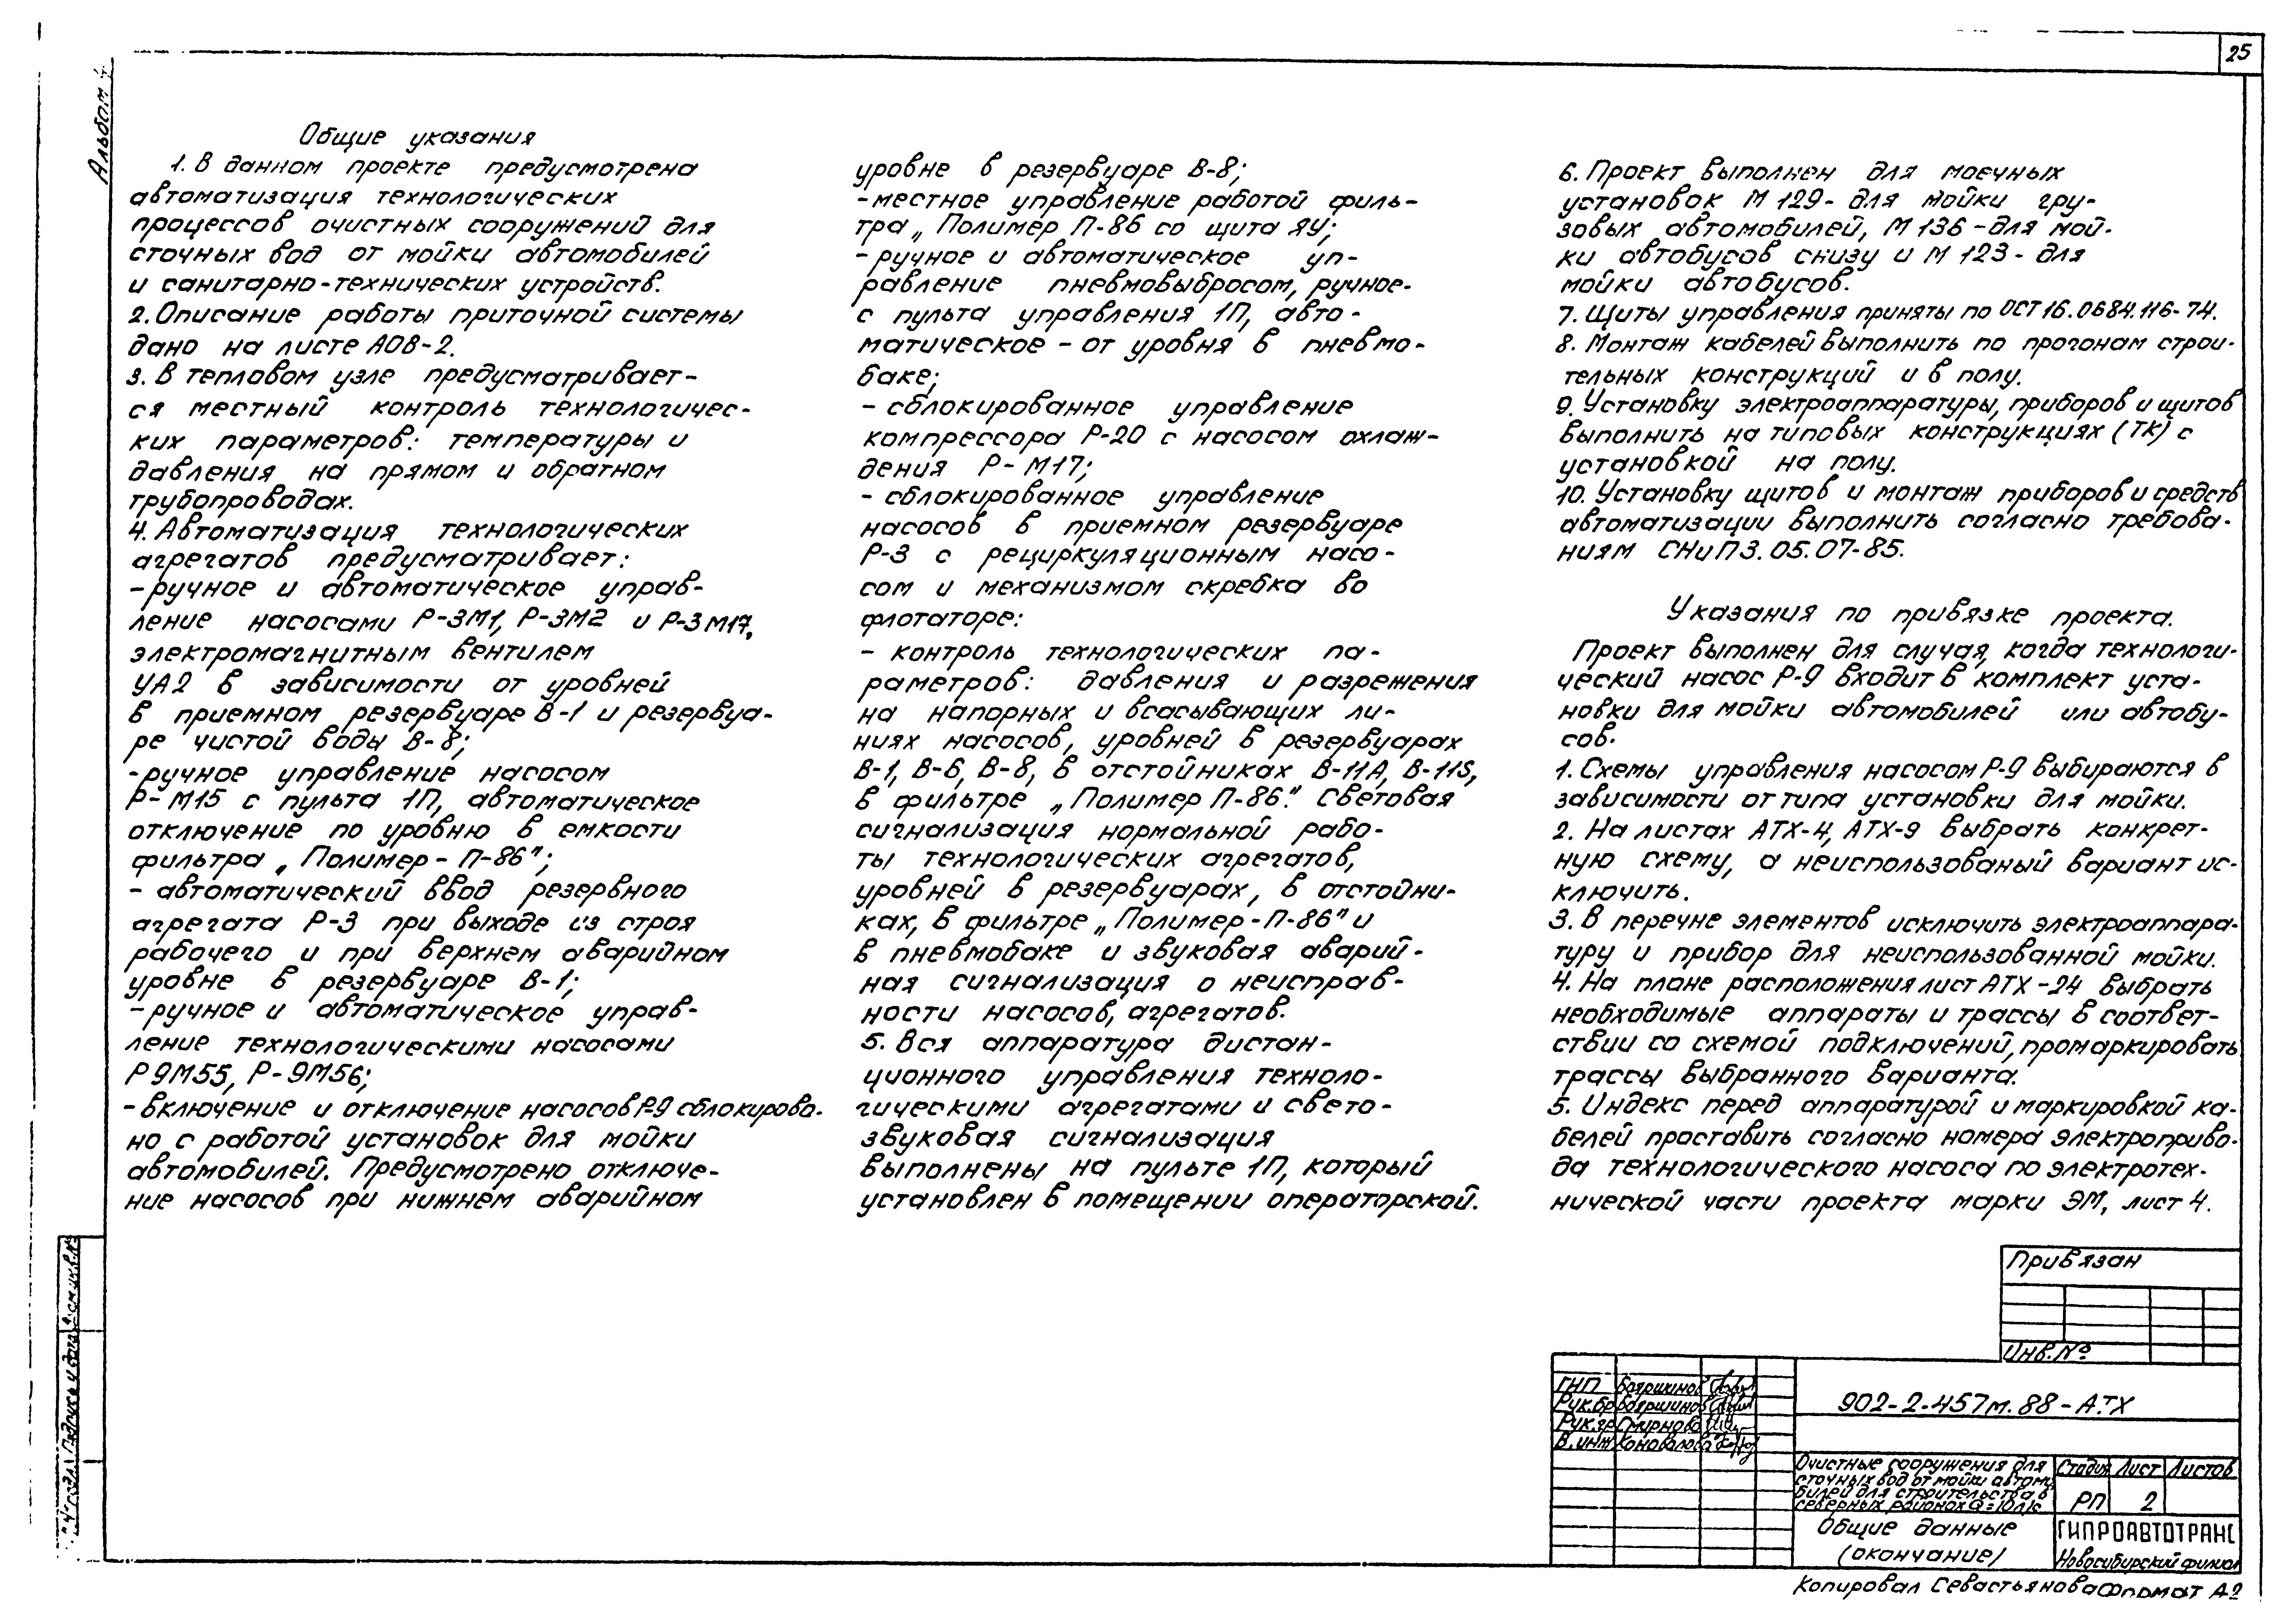 25
Альбом 4
Общие указания
1. В данном проекте предусмотрена
автоматизация технологических
процессов очистных сооружений для
сточных вод от мойки автомобилей
и санитарно-технических устройств.
2. Описание работы приточной системы
дано на листе АОВ-2.
3. В тепловом узле предусматривает-
ся местный контроль технологичес-
ких параметров: температуры и
давления на прямом и обратном
трубопроводах.
4. Автоматизация технологических
агрегатов предусматривает:
-ручное и автоматическое управ-
ление насосами Р-3М1, Р-3М2 и Р-3М17,
электромагнитным вентилем
УА2 в зависимости от уровней
в приемном резервуаре В-1 и резервуа-
ре чистой воды В-8;
-ручное управление насосом
Р-М15 с пульта 1П, автоматическое
отключение по уровню в емкости
фильтра „Полимер-П-86";
- автоматический ввод резервного
агрегата Р-3 при выходе из строя
рабочего и при верхнем аварийном
уровне в резервуаре В-1;
-ручное и автоматическое управ-
ление технологическими насосами
Р9М55, Р-9М56;
-включение и отключение насосов Р-9 сблокирова-
но с работой установок для мойки
автомобилей. Предусмотрено отключе-
ние насосов при нижнем аварийном
уровне в резервуаре В-8;
-местное управление работой филь-
тра „Полимер П-86 со щита ЯУ;
-ручное и автоматическое уп-
равление пневмовыбросом, ручное-
с пульта управления 1П, авто-
матическое - от уровня в пневмо-
баке;
- сблокированное управление
компрессора Р-20 с насосом охлаж-
дения Р-М17;
- сблокированное управление
насосов в приемном резервуаре
Р-3 с рециркуляционным насо-
сом и механизмом скребка во
флотаторе:
- контроль технологических па-
раметров: давления и разрежения
на напорных и всасывающих ли-
ниях насосов, уровней в резервуарах
В-1, В-6, В-8, в отстойниках В-11А, В-11Б,
в фильтре „Полимер П-86." Световая
сигнализация нормальной рабо-
ты технологических агрегатов,
уровней в резервуарах, в отстойни-
ках, в фильтре „Полимер-П-86" и
в пневмобаке и звуковая аварий-
ная сигнализация о неисправ-
ности насосов, агрегатов.
5. Вся аппаратура дистан-
ционного управления техноло-
гическими агрегатами и свето-
звуковая сигнализация
выполнены на пульте 1П, который
установлен в помещении операторской.
6. Проект выполнен для моечных
установок М 129- для мойки гру-
зовых автомобилей, М 136 -для мой-
ки автобусов снизу и М 123- для
мойки автобусов.
7. Щиты управления приняты по ОСТ16.0684.116-74.
8. Монтаж кабелей выполнить по прогонам строи-
тельных конструкций и в полу.
9. Установку электроаппаратуры, приборов и щитов
выполнить на типовых конструкциях (ТК) с
установкой на полу.
10. Установку щитов и монтаж приборов и средств
автоматизации выполнить согласно требова-
ниям СНиП 3.05.07-85.
Указания по привязке проекта.
Проект выполнен для случая, когда технологи-
ческий насос Р-9 входит в комплект уста-
новки для мойки автомобилей или автобу-
сов.
1. Схемы управления насосом Р-9 выбираются в
зависимости от типа установки для мойки.
2. На листах АТХ-4, АТХ-9 выбрать конкрет-
ную схему, а неиспользованый вариант ис-
ключить.
3. В перечне элементов исключить электроаппара-
туру и прибор для неиспользованной мойки.
4. На плане расположения лист АТХ-24 выбрать
необходимые аппараты и трассы в соответ-
ствии со схемой подключений, промаркировать
трассы выбранного варианта.
5. Индекс перед аппаратурой и маркировкой ка-
белей проставить согласно номера электроприво-
да технологического насоса по электротех-
нической части проекта марки ЭМ, лист 4.
Привязан
Инв.№
ГИП Бояршинов
Рук.бр Бояршинов
Рук.гр Смирнова
В.инж Коновалова
902-2-457м.88-АТХ
Очистные сооружения для
сточных вод от мойки автомо
билей для строительства в
северных районах Q=10л/с
Стадия Лист Листов
РП 2
Общие данные
(окончание)
ГИПРОАВТОТРАНС
Новосибирский филиал
Копировал Севастьянова Формат А2
Подпись и дата